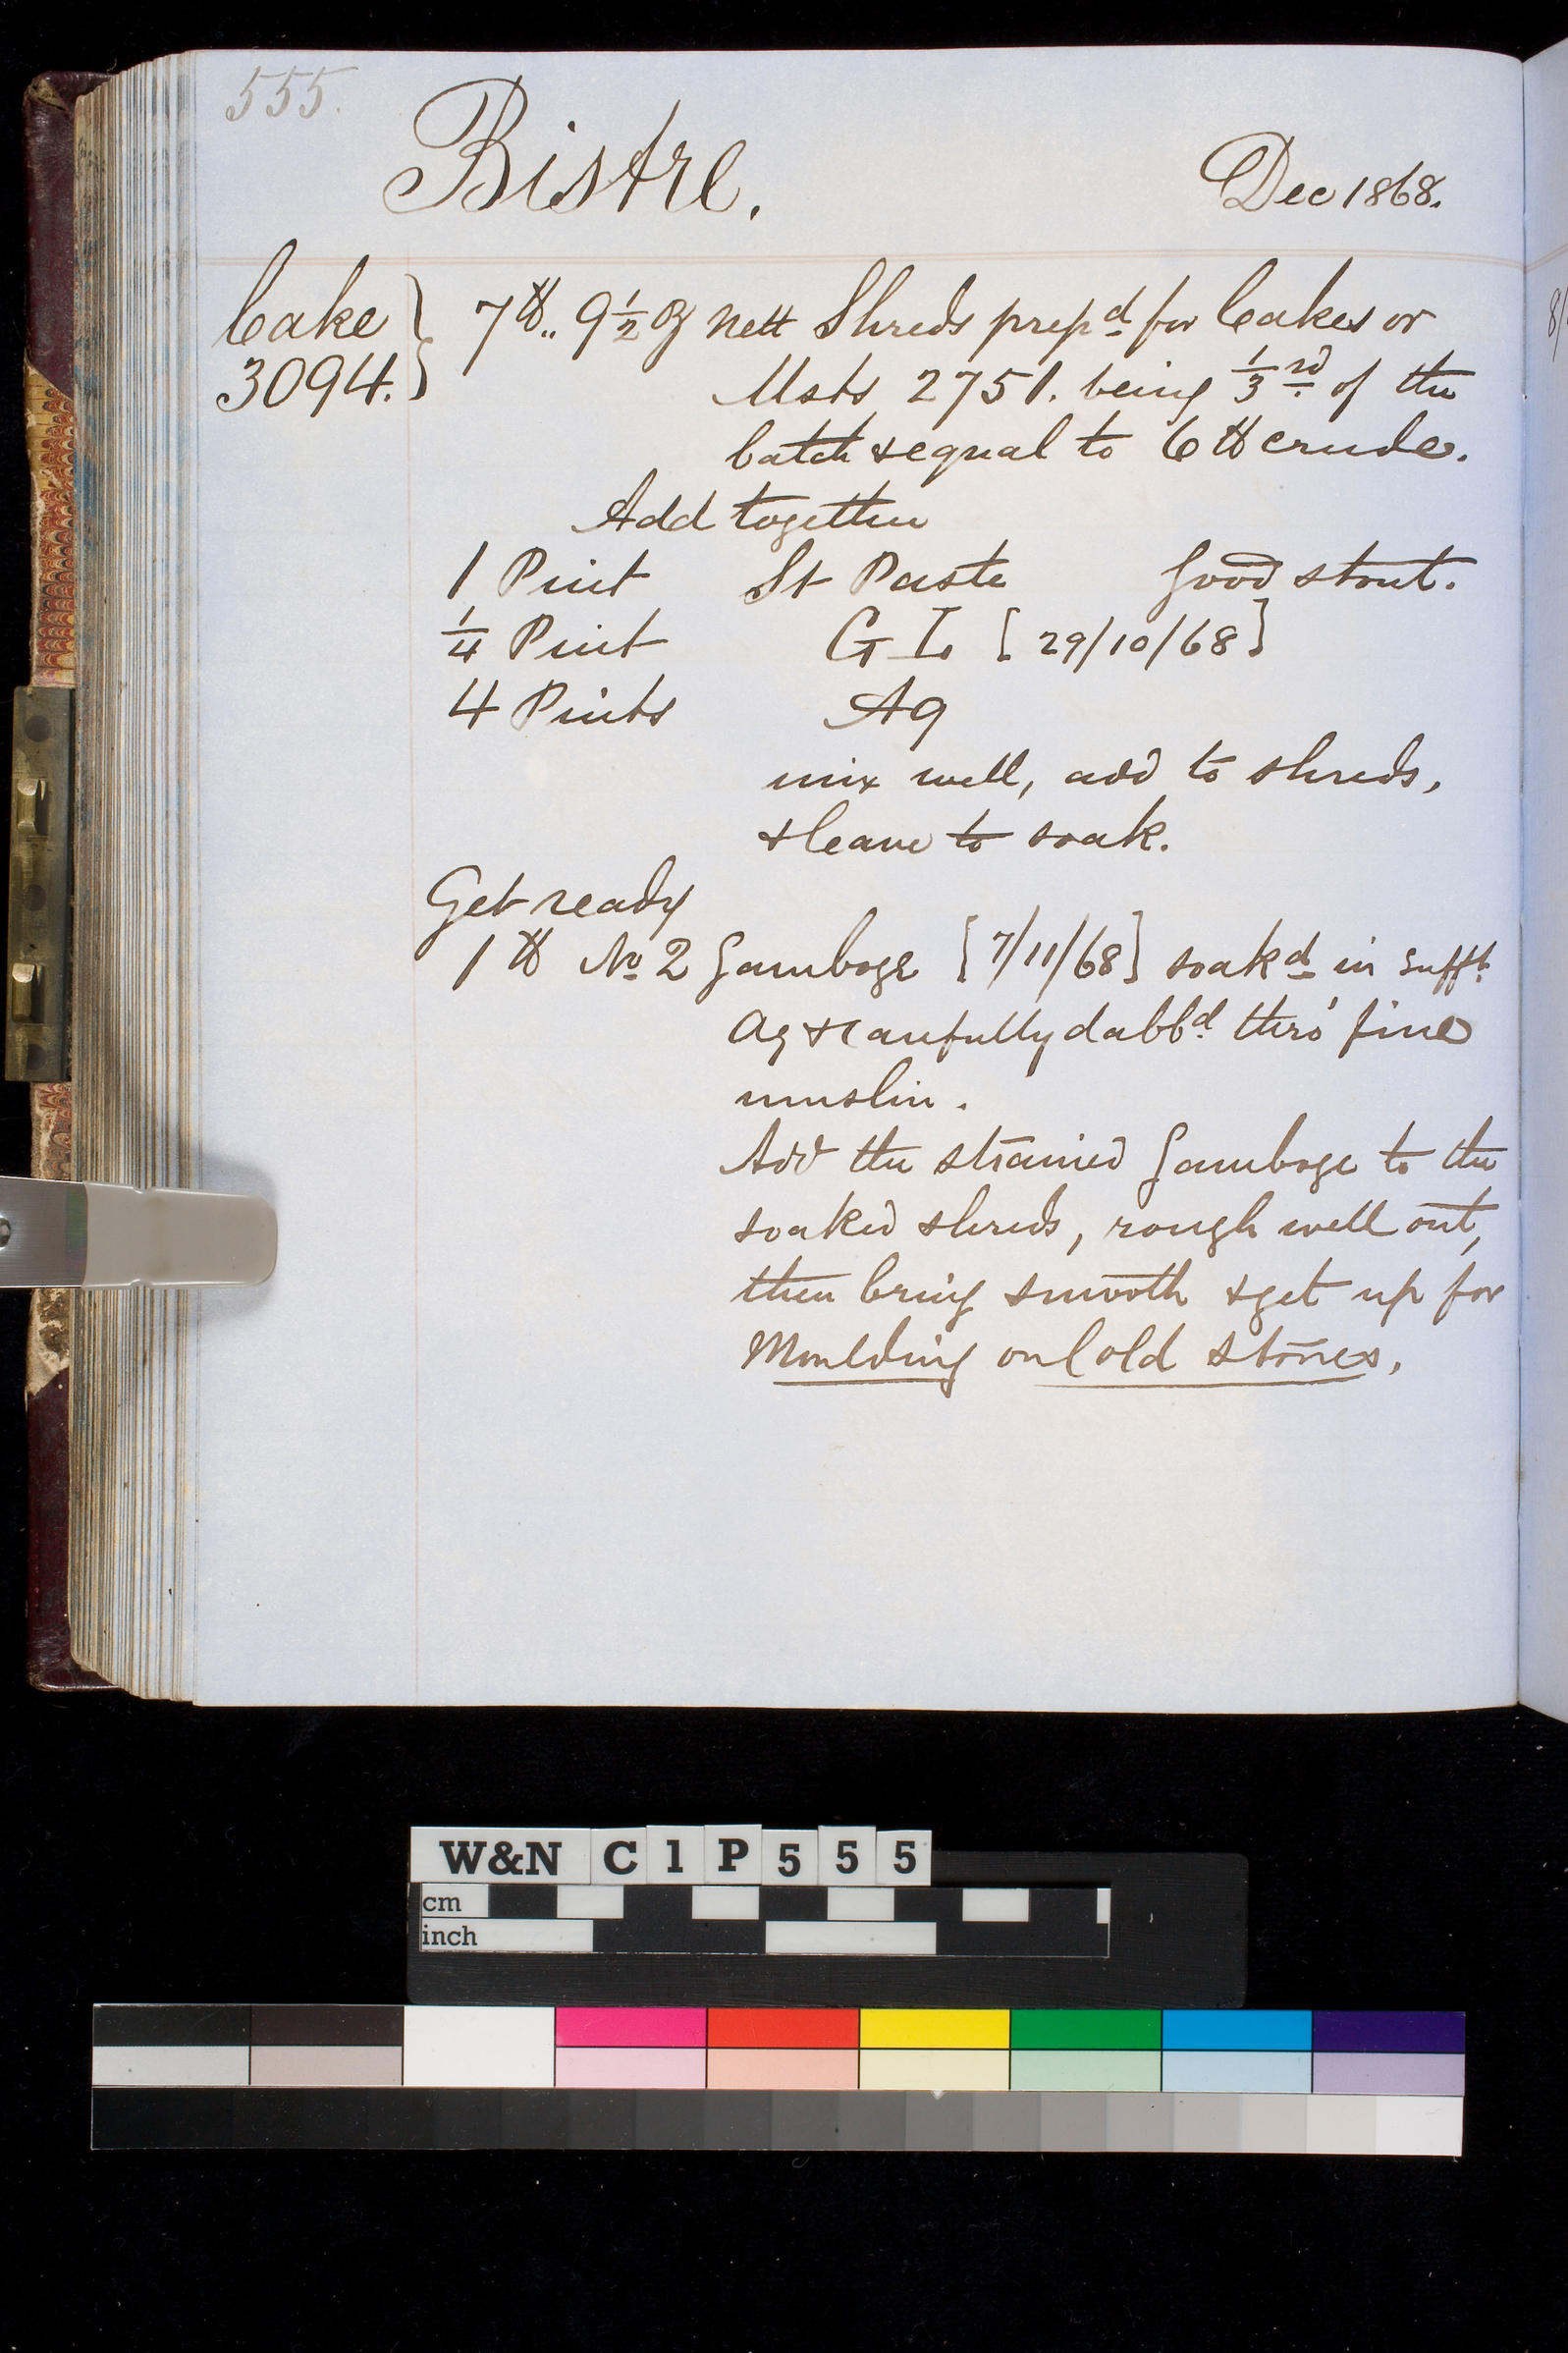 555.
Bistre.
Dec 1868.
Cake
3094.
7 ℔.. 9½ oz nett Shreds prepd for Cakes or
Msts 2751. being ⅓rd of the
batch & equal to 6 ℔ crude.
Add together
1 Pint St Paste Good stout.
¼ Pint G I [29/10/68]
4 Pints Aq
mix well, add to shreds,
& leave to soak.
Get ready
1 ℔ No 2 Gamboge [7/11/68] soakd in sufft
Aq & carefully dabbd thro' fine
muslin.
Add the strained Gamboge to the
soaked shreds, rough well out,
then bring smooth & get up for
Moulding on Cold stones.
8/
W&N C1P555
cm
inch